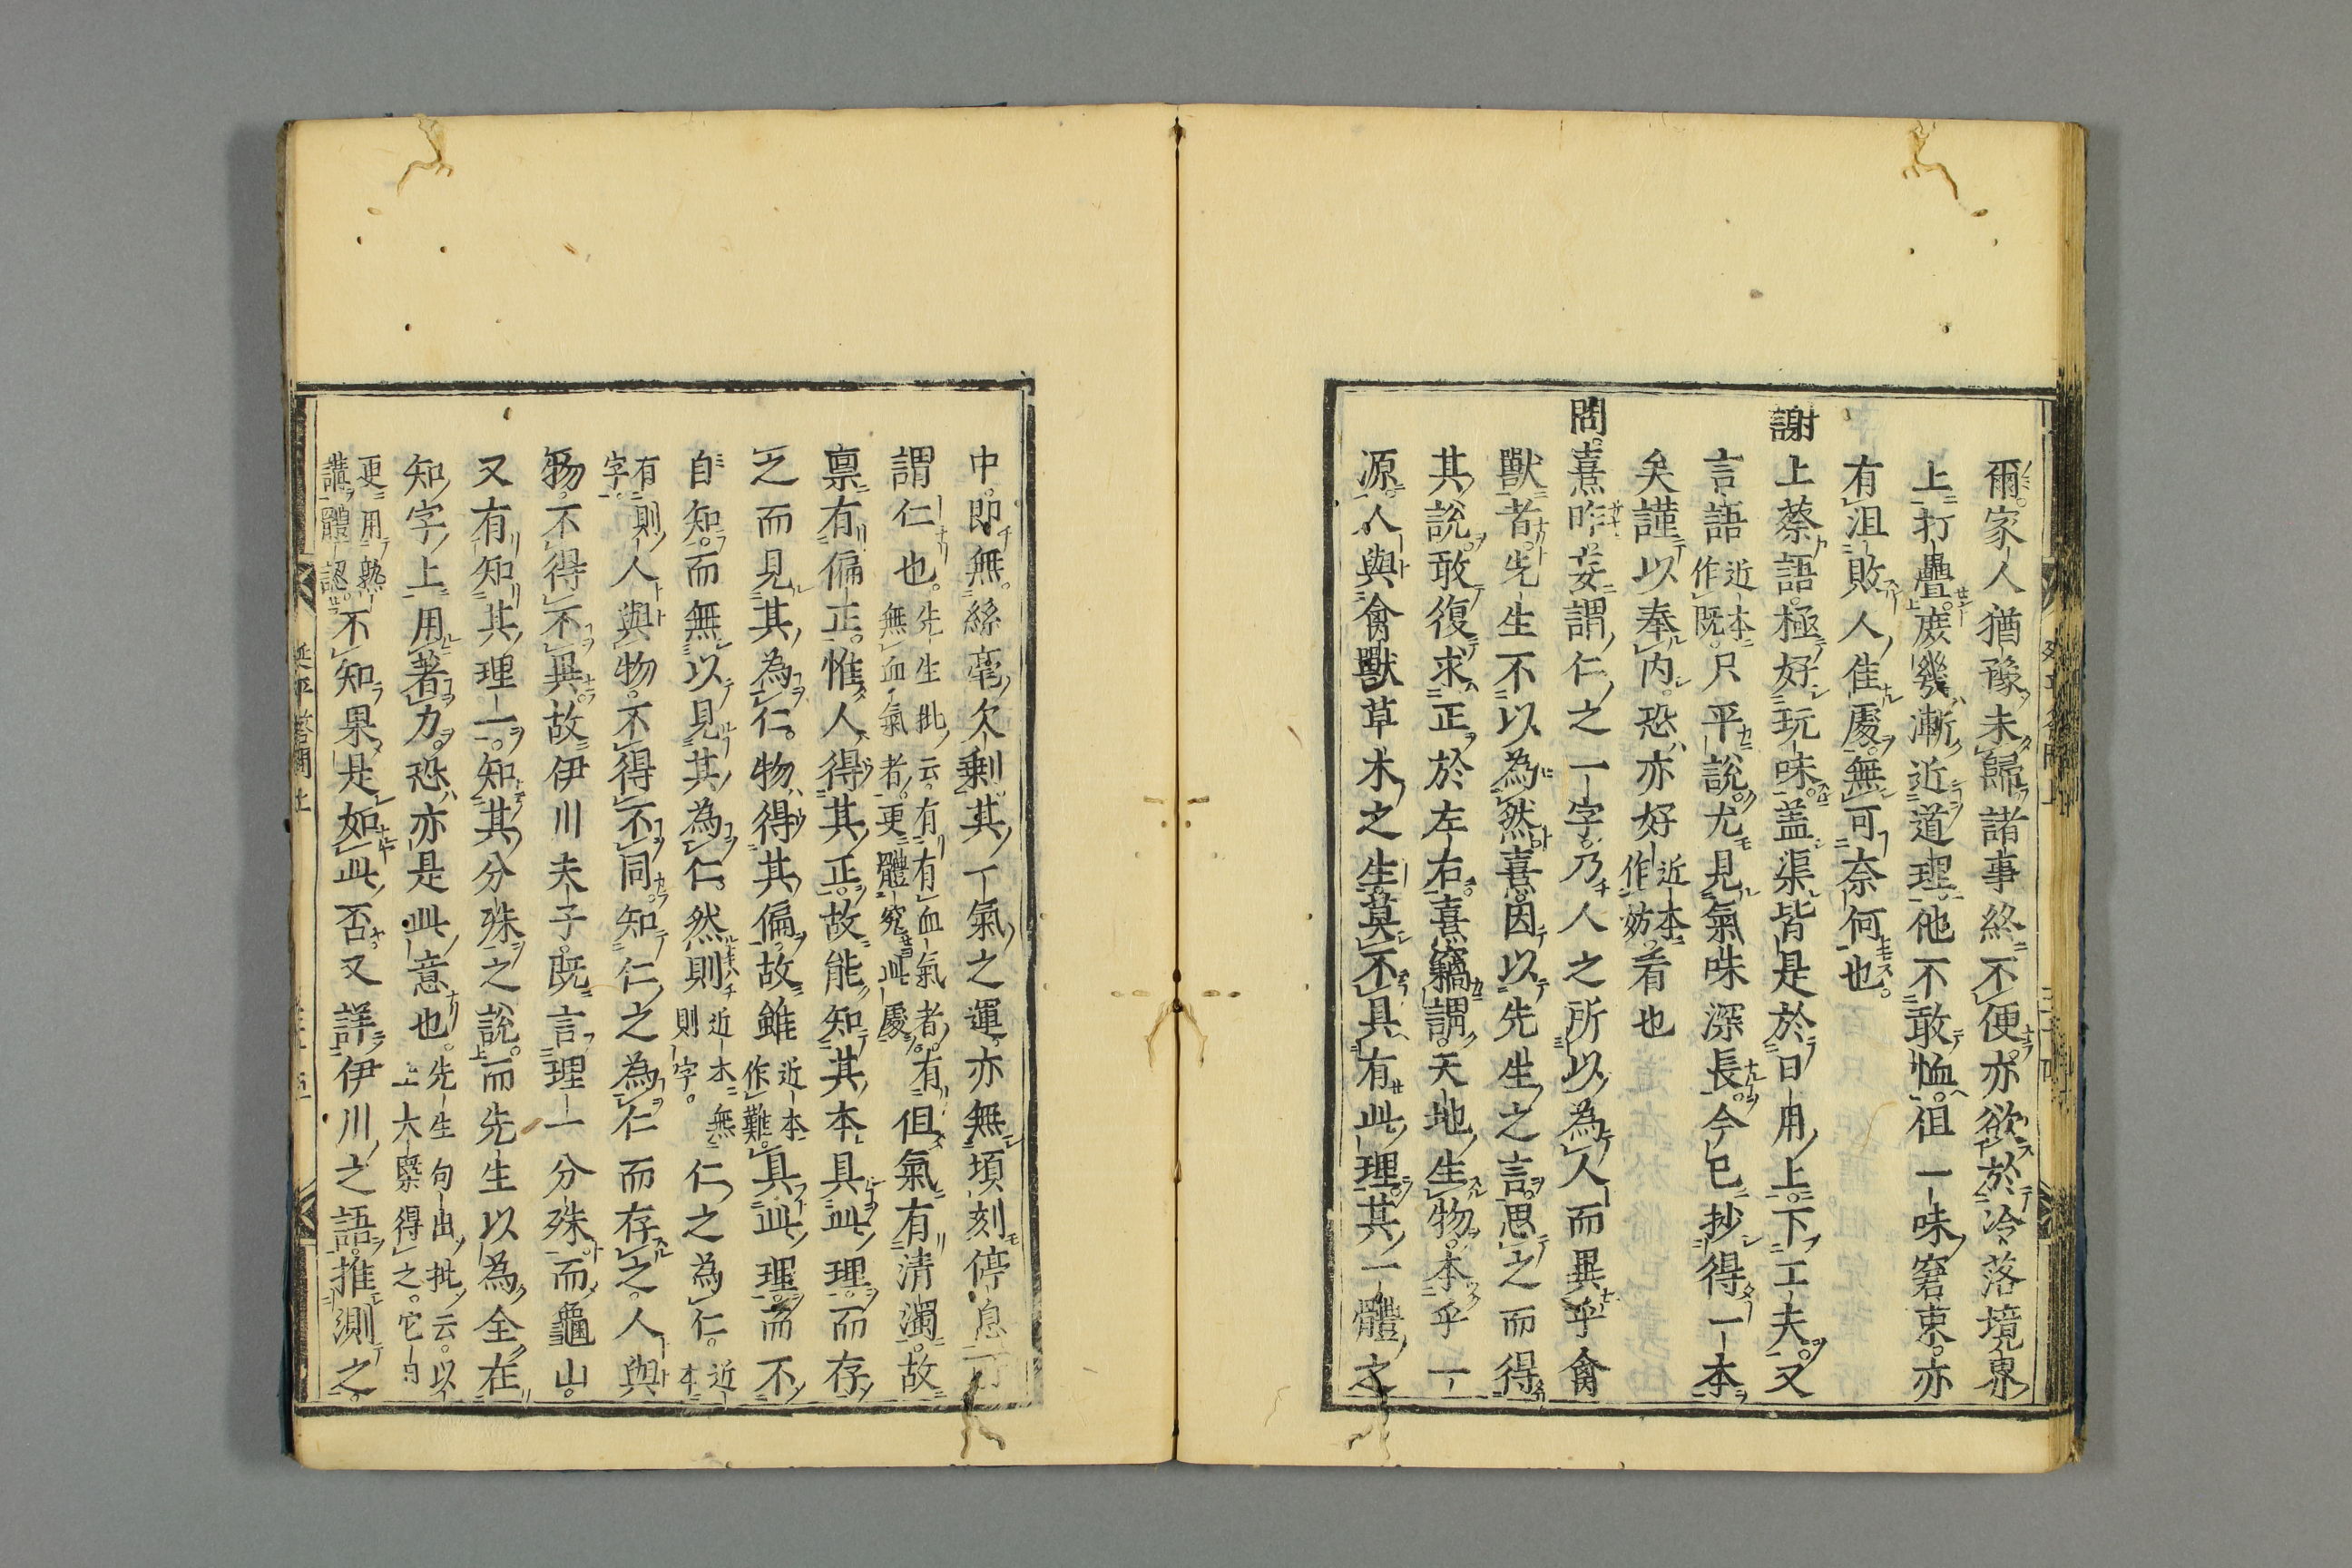 爾家人猶豫未歸諸事終不便亦欲於冷落境界
上打疊庶幾漸近道理他不敢恤但一味窘束亦
有沮敗人佳處無可奈何也
謝上蔡語極好玩味盖渠皆是於日用上下工夫又
言語近本作既只平說尤見氣味深長今已抄得一本
矣謹以奉内恐亦好近本作妨看也
問熹昨妄謂仁之一字乃人之所以為人而異乎禽
獸者先生不以為然熹因以先生之言思之而得
其說敢復求正於左右熹竊謂天地生物本乎一
源人與禽獸草木之生莫不具有此理其一體之
中即無絲毫欠剩其一氣之運亦無頃刻停息
謂仁也先生批云有有血氣者有無血氣者更體究此處但氣有清濁故
禀有偏正惟人得其正故能知其本具此理而存
之而見其為仁物得其偏故雖近本作難具此理而不
自知而無以見其為仁然則近本無則字仁之為仁近本
有字則人與物不得不同知仁之為仁而存之人與
物不得不異故伊川夫子既言理一分殊而龜山
又有知其理一知其分殊之說而先生以為全在
知字上用著力恐亦是此意也先生句出批云以上大槩得之它日
更用熟講體認不知果是如此否又詳伊川之語推測之
延平答問上